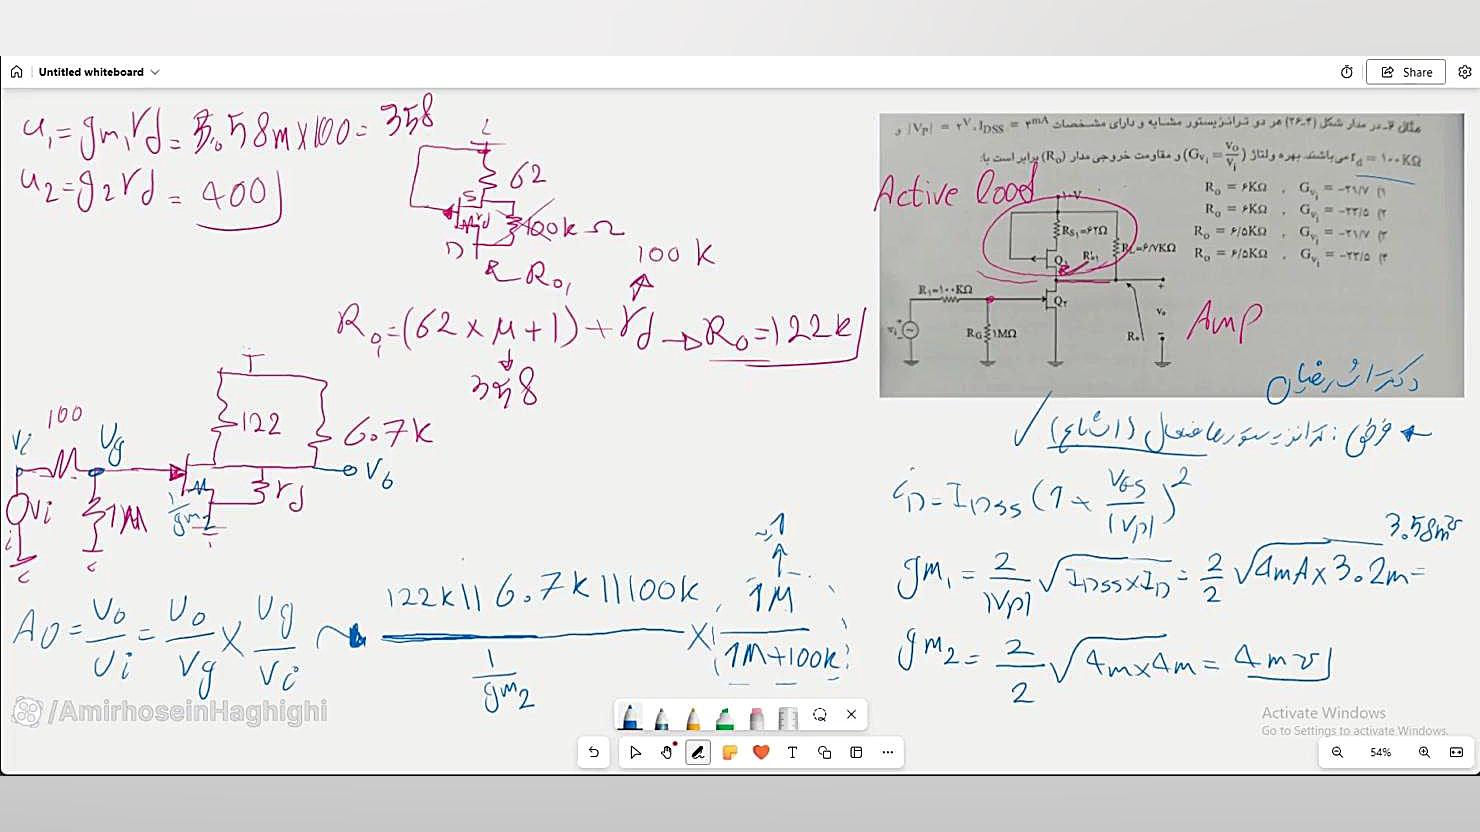 Untitled whiteboard
Share
u₁=gm₁rd=3.58m×100=358
u₂=g₂rd=400
62
S
rd
D
100k Ω
Ro₁
100 K
Ro₁=(62×μ+1)+rd→Ro=122k
358
T
100
Vi
Vg
122
6.7K
Vo
rd
1/gm₂
1M
Vi
Ao=Vo/Vi=Vo/Vg×Vg/Vi
122k||6.7k||100k
1/gm₂
×(1M/(1M+100k))
~1
مثال ۶ـ در مدار شکل (۴ـ۲۶) هر دو ترانزیستور مشابه و دارای مشخصات IDSS = ۴mA ،|VP| = ۲V و
rd = ۱۰۰KΩ می‌باشند. بهره ولتاژ (Gvi = Vo/Vi) و مقاومت خروجی مدار (Ro) برابر است با:
۱) Gvi = −۲۱/۷ , Ro = ۶KΩ
۲) Gvi = −۲۳/۵ , Ro = ۶KΩ
۳) Gvi = −۲۱/۷ , Ro = ۶/۵KΩ
۴) Gvi = −۲۳/۵ , Ro = ۶/۵KΩ
Active load
RS1=۶۲Ω
RL=۶/۷KΩ
Q۱
Ro1
R1=۱۰۰KΩ
Q۲
RG
۱MΩ
vi
vo
Ro
Amp
فرض: ترانزیستورها فعال (اشباع)
iD=IDSS(1+VGS/|VP|)²
3.58m℧
gm₁=2/|VP|√IDSS×ID=2/2√4mA×3.2m=
gm₂=2/2√4m×4m=4m℧
/AmirhoseinHaghighi
Activate Windows
Go to Settings to activate Windows.
54%